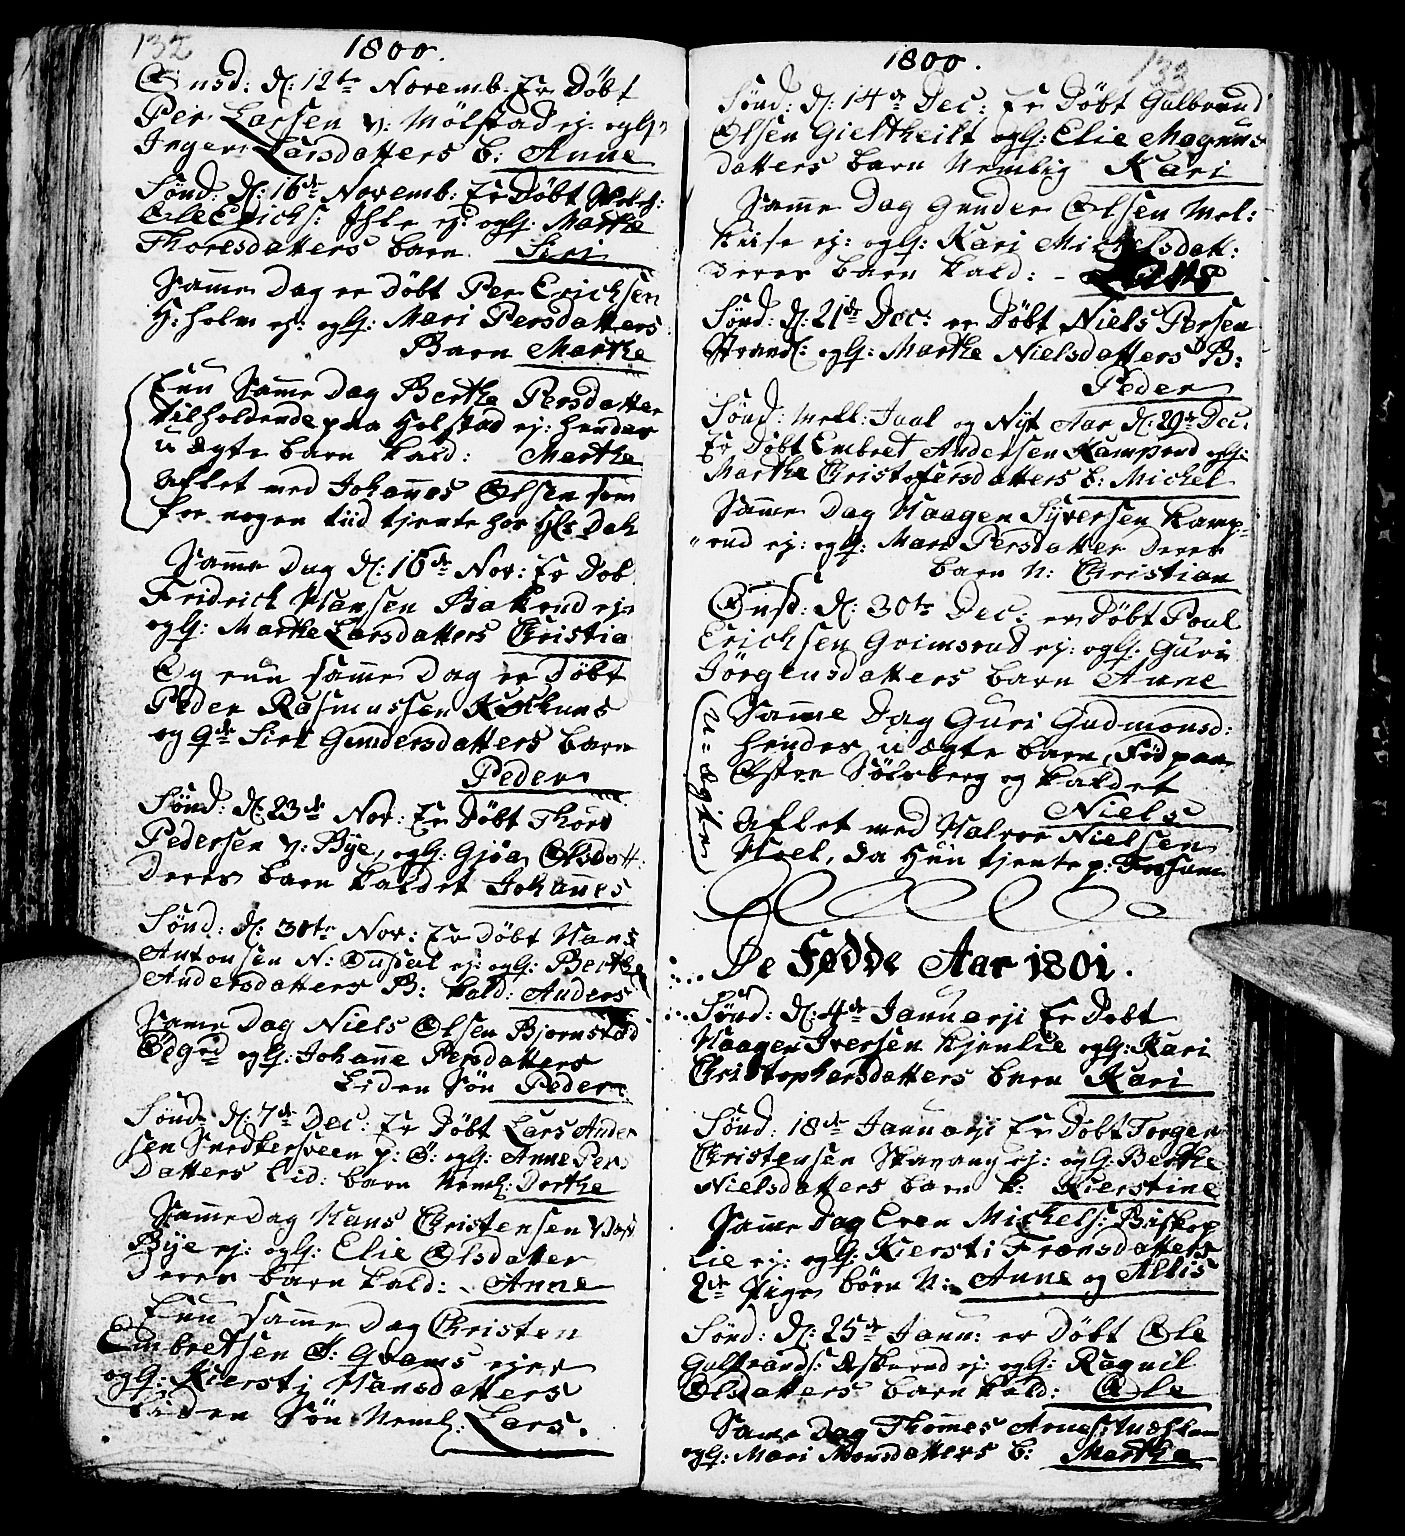 132
1800.
Onsd: d: 12te Novemb. Er Døbt
Per Larsen v: Mølstad ej. og G:
Inger Larsdatters b: Anne
Sönd: d: 16de Novemb: Er Døbt
Ole Erichs: Ihle ej: og G: Marthe
Thoresdatters barn Siri
Samme Dag er Døbt Per Erichsen
H: holm ej: og G: Mari Persdatters
Barn Marthe
Enn Samme Dag Berthe Persdatter
tilholdende paa Holstad ej: hendes
u ægte barn kald: Marthe
aflet med Johannes Olsen som
for nogen tiid tjente hos Dah
Samme Dag d: 16de Nov: Er Døb
Fridrich Hansen Bakrud ej
og G: Marthe Larsdatters Christia
Og enn samme Dag er Døbt
Peder Rasmussen
og Gde Siri Gundersdatters barn
Peder
Sönd: d: 23de Nov: Er Døbt Thore
Pedersen v: Bye, og G: Gjøa Olsdatt:
Deres barn kaldet Johannes
Sönd: d: 30te Nov: Er Døbt Hans
Antonsen N: ej: og G: Berthe
Andersdatters B: kald: Anders
Samme Dag Niels Olsen Bjørnstad
Ødegrd og G: Johanne Persdatters
Liden Søn Peder
Sönd: d: 7de Dec: Er Døbt Lars Ander
sen Snedkersveen p: Ø: og G: Anne Pers
Datters lid: barn Neml: Dorthe
Samme dag Hans Christensen
Bye ej: og G: Elie Olsdatter
Deres barn kald: Anne
Enn samme Dag Christen
Embretsen Ø: Grams ejer
og G: Kiersti Hansdatters
Liden Søn Neml: Lars.
1800.
133
Sönd: d: 14de Dec: Er Døbt Gulbrand
Olsen Gieltheilt og G: Elie Magnus
datters barn Nemlig Kari
Samme Dag Gunder Olsen Mel:
huse ej: og G: Kari Michelsdatt:
Deres barn kald:
Sönd: d: 21de Dec: er Døbt Niels Persen
Strandl: og G: Marthe Nielsdatters B:
Peder
Sönd: Mell: Juul og Nyt Aar d: 29de Dec:
Er Døbt Embret Andersen Kamperud og G:
Marthe Christofersdatters b: Michel
Samme Dag Haagen Syversen Kamp-
„rud ej: og G: Mari Persdatter Deres
barn N: Christian
Onsd: d: 30te Dec: er Døbt Poul
Erichsen Grimsrud ej: og G: Guri
Jörgensdatters barn Anne
U=ægte
Samme Dag Guri Gudmonsd:
hendes u ægte barn, Fød paa
Østre Solsberg og kaldet
Niels
aflet med Halvor Nielsen
Moel, da Hun tjente p: Fossum
De Fødde Aar 1801.
Sönd: d: 4de Januarji Er Døbt
Haagen Iversen Kjenlie og G: Kari
Christophersdatters barn Kari
Sönd: 18de Januarji Er Døbt Torger
Christensen Skavang ej: og G: Berthe
Nielsdatters barn k: Kierstine
Samme Dag Even Michels: Biskop
lie ej: og G: Kiersti Fransdatters
2de Pige börn N: Anne og Alhis
Sönd: d: 25de Janu: er Døbt Ole
Gulbrands: Askerud ej: og G: Ragnil
Olsdatters barn kald: Ole
Samme Dag Thomes Arnes:
og G: Mari Monsdatters b: Marthe